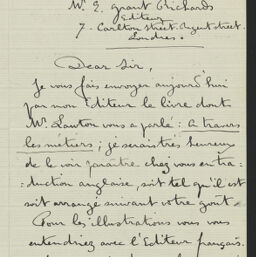 Mr. G. Grant Richards
Editeur
7. Carlton Street. Regent Street.
Londres.
Dear Sir,
Je vous fais envoyer aujourd'hui
par mon Editeur le livre dont
Mr. Lawton vous a parlé : a travers
les métiers ; je serais très heureux
de le voir paraitre chez vous en tra=
=duction anglaise, soit tel qu'il est
soit arrangé suivant votre goût.
Pour les illustrations vous vous
entendriez avec l'Editeur français.